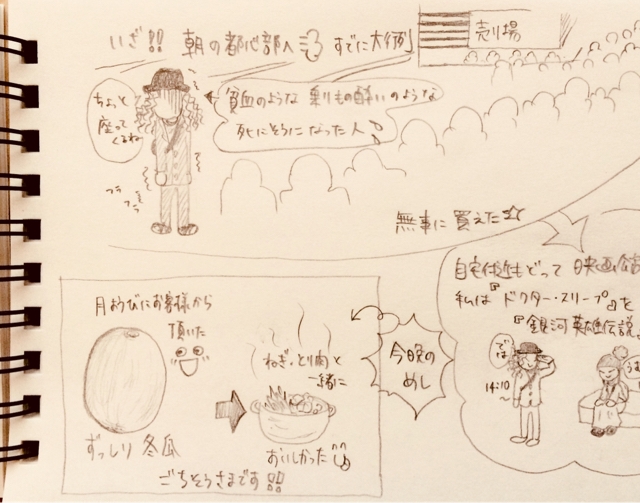 いざ!! 朝の都心部へ すでに大行列
売り場
ちょっと
座って
くるね
貧血のような 乗りもの酔いのような
死にそうになった人
フラ
フラ
無事に買えた☆
自宅付近もどって 映画館
私は『ドクター・スリープ』を
『銀河英雄伝説
では
14:10
〜
月ようびにお客様から
頂いた
ずっしり 冬瓜
ねぎ・とり肉と
一緒に
おいしかった
ごちそうさまです!!
今晩の
めし